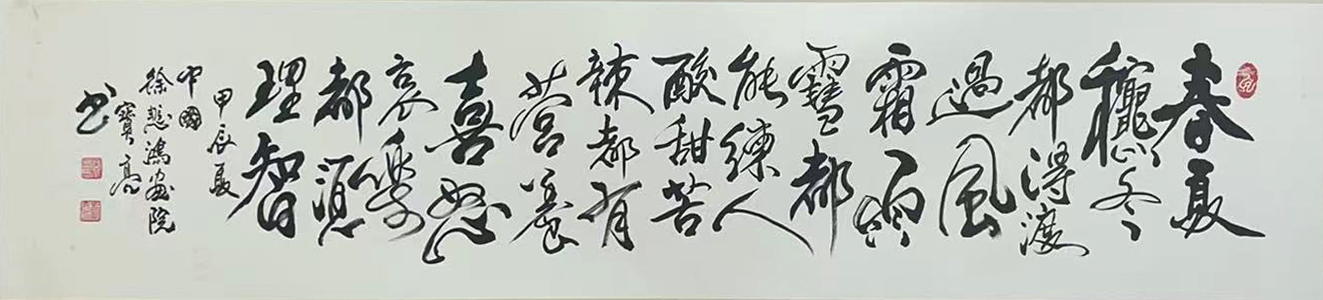 春夏
龝冬
都得渡
過風
霜雨
雪都
能練人
酸甜苦
辣都有
营養
喜怒
哀樂
都須
理智
甲辰夏
中國
徐悲鴻畫院
寶亮
书